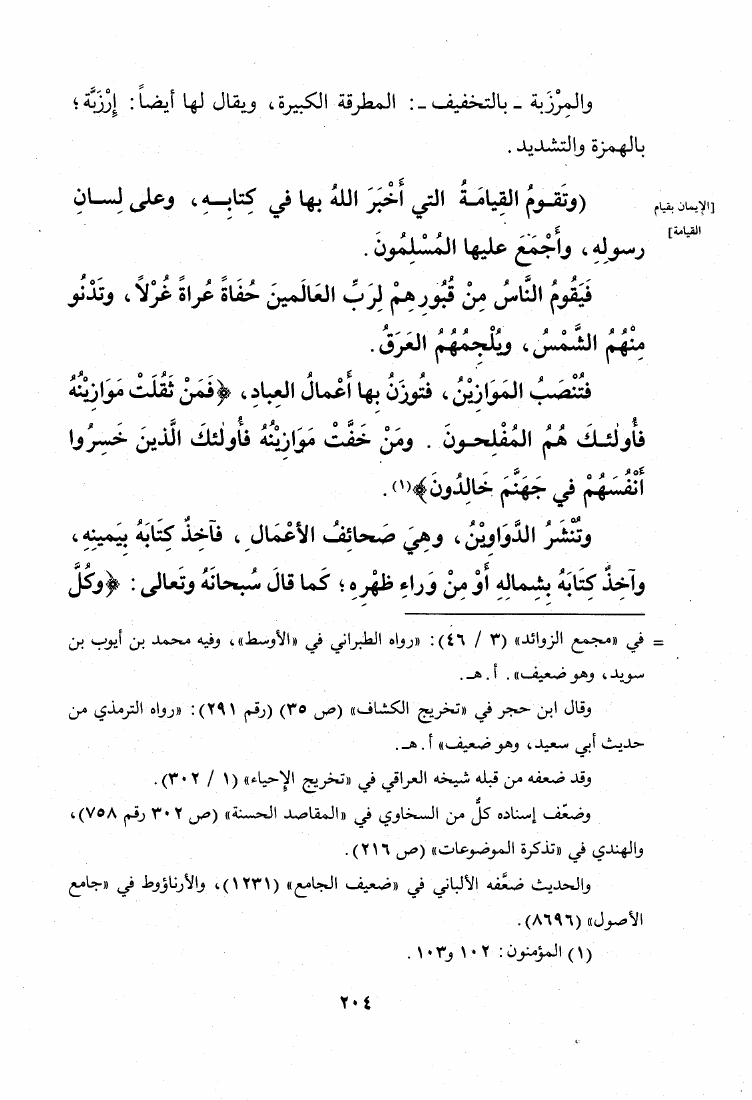 والمِرْزَبة ـ بالتخفيف ـ: المطرقة الكبيرة، ويقال لها أيضاً: إِرْزَبَّة؛
بالهمزة والتشديد.
[الإيمان بقيام القيامة]
(وتَقـومُ القِيامَـةُ التي أَخْبَرَ اللهُ بها في كِتابِــهِ، وعلى لِسـانِ
رسولِهِ، وأَجْمَعَ عليها المُسْلِمُونَ.
فَيَقُومُ النَّاسُ مِنْ قُبُورِهِمْ لِرَبِّ العَالَمينَ حُفَاةً عُراةً غُرْلاً، وتَدْنُو
مِنْهُمُ الشَّمْسُ، ويُلْجِمُهُمُ العَرَقُ.
فَتُنْصَبُ المَوَازِيْنُ، فَتُوزَنُ بها أَعْمالُ العِبادِ، ﴿فَمَنْ ثَقُلَتْ مَوَازِيْنُهُ
فأُولٰئـكَ هُمُ المُفْلِحـونَ . ومَنْ خَفَّتْ مَوَازِيْنُهُ فأُولٰئكَ الَّذينَ خَسِرُوا
أَنْفُسَهُمْ في جَهَنَّمَ خَالِدُونَ﴾(١).
وتُنْشَرُ الدَّوَاوِيْنُ، وهِيَ صَحائِفُ الأعْمَالِ، فَآخِذٌ كِتَابَهُ بِيَمينِهِ،
وآخِذٌ كِتَابَهُ بِشِمالِهِ أَوْ مِنْ وَراءِ ظَهْرِهِ؛ كَما قالَ سُبحانَهُ وتَعالى: ﴿وكُلَّ
= في «مجمع الزوائد» (٣ / ٤٦): «رواه الطبراني في «الأوسط»، وفيه محمد بن أيوب بن
سويد، وهو ضعيف». أ. هـ.
وقال ابن حجر في «تخريج الكشاف» (ص ٣٥) (رقم ٢٩١): «رواه الترمذي من
حديث أبي سعيد، وهو ضعيف» أ. هـ.
وقد ضعفه من قبله شيخه العراقي في «تخريج الإحياء» (١ / ٣٠٢).
وضعّف إسناده كلٌّ من السخاوي في «المقاصد الحسنة» (ص ٣٠٢ رقم ٧٥٨)،
والهندي في «تذكرة الموضوعات» (ص ٢١٦).
والحديث ضعَّفه الألباني في «ضعيف الجامع» (١٢٣١)، والأرناؤوط في «جامع
الأصول» (٨٦٩٦).
(١) المؤمنون: ١٠٢ و١٠٣.
٢٠٤